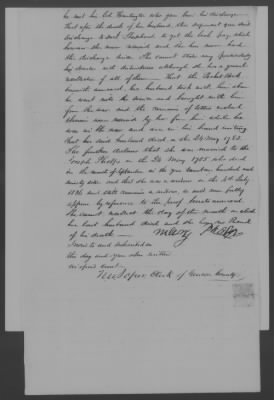 he met his Col. Huntington who gave him his discharge
That after the death of her husband, this deponent gave said
discharge to Seth Shepherd to get the back pay, which
however she never received and she has never had
the discharge since. She cannot state any particulars
of service with distinctness although she has a general
recollection of all of them. That the pocket Book
herewith annexed, her husband took with him when
he went into the service and brought with him
from the war and the remains of letters enclosed
therein were received by her from him while he
was in the war and are in his hand writing
That her said husband died on the 24 May 1782.
She further declares that she was married to the
Joseph Phelps on the 24 May 1785 who died
in the month of September in the year Eighteen hundred and
thirty and that she was a widow on the 4th July
1836 and still remains a widow, as will more fully
appear by reference to the proof hereto annexed.
She cannot recollect the day of the month on which
her last husband died and she has no Record
of his death
Mary Phelps
Sworn to and subscribed on
the day and year above written
in open Court
Clerk of Geneva County